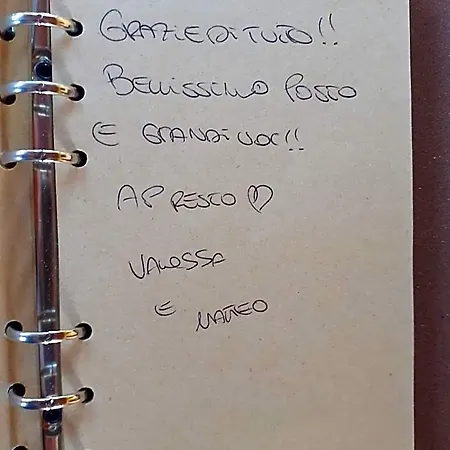 GRAZIE DI TUTO!!
BELLISSIMO POSTO
E GRANDI VOI!!
A PRESTO
VANESSA
E
MATTEO